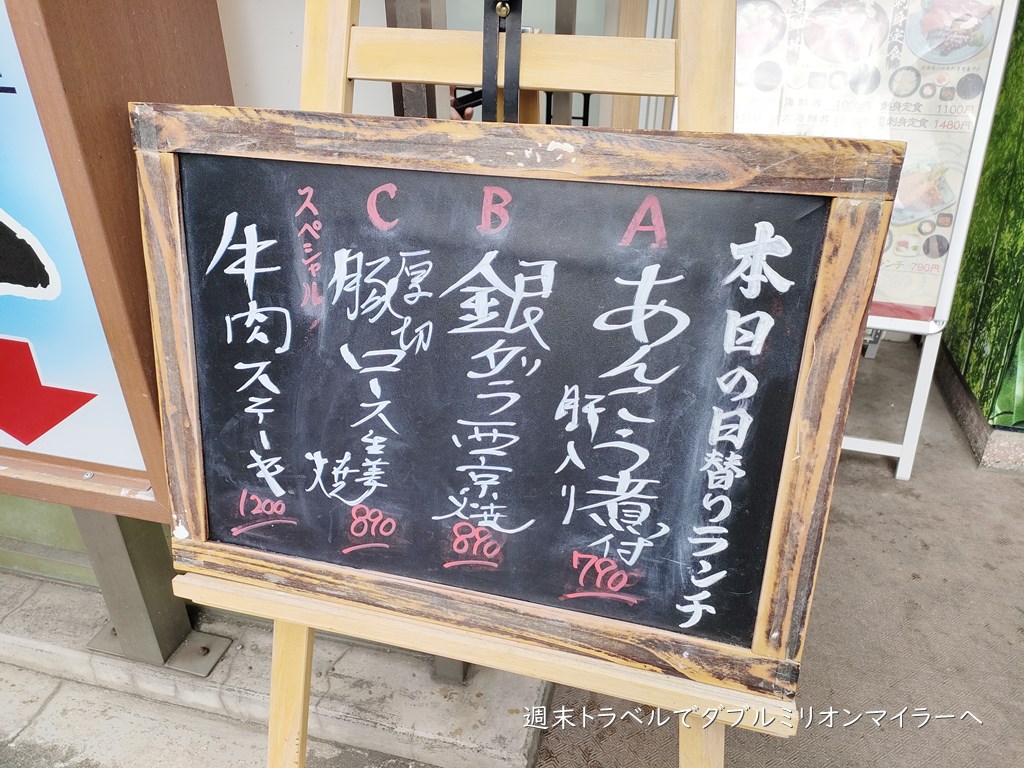 本日の日替りランチ
A
あんこう煮付
肝入り
790
B
銀ダラ西京焼
890
C
厚切
豚ロース生姜焼
890
スペシャル
牛肉ステーキ
1200
1100円
刺身定食 1480円
790円
週末トラベルでダブルミリオンマイラーへ